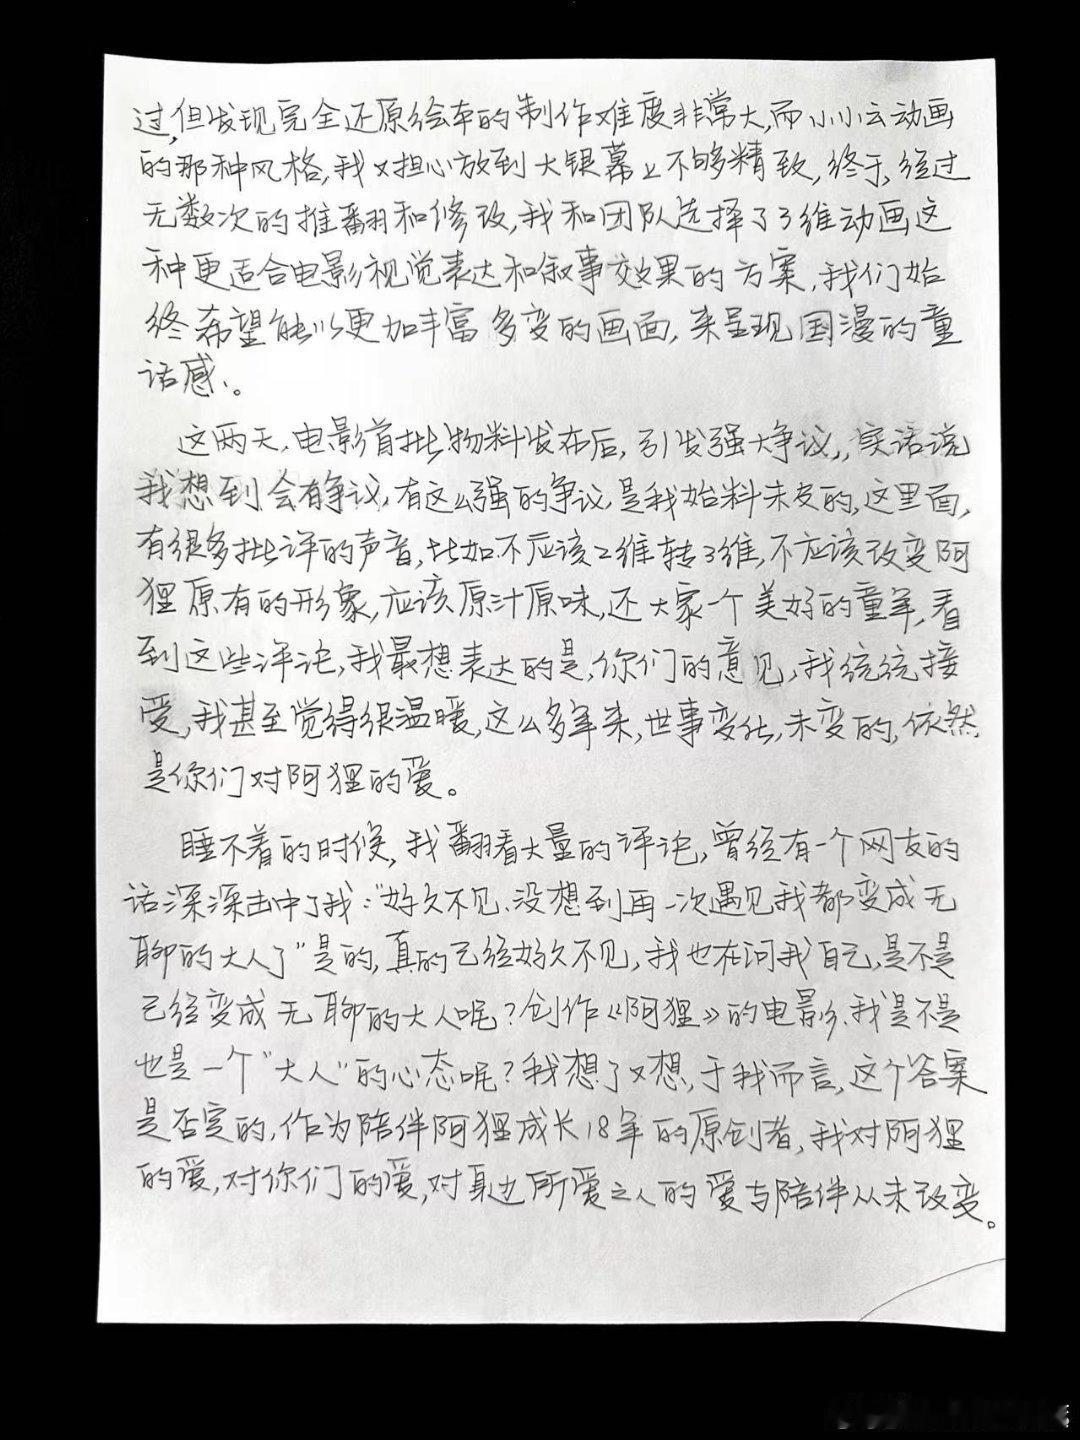 过,但发现完全还原绘本的制作难度非常大,而小小云动画
的那种风格,我又担心放到大银幕上不够精致,终于,经过
无数次的推翻和修改,我和团队选择了3维动画这
种更适合电影视觉表达和叙事效果的方案,我们始
终希望能以更加丰富多变的画面,来呈现国漫的童
话感、。
这两天、电影首批物料发布后,引发强大争议,,实话说
我想到会有争议,有这么强的争议,是我始料未及的,这里面,
有很多批评的声音,比如不应该2维转3维,不应该改变阿
狸原有的形象,应该原汁原味,还大家一个美好的童年,看
到这些评论,我最想表达的是,你们的意见,我统统接
受,我甚至觉得很温暖,这么多年来,世事变化,未变的,依然
是你们对阿狸的爱。
睡不着的时候,我翻看大量的评论,曾经有一个网友的
话深深击中了我:"好久不见、没想到再一次遇见我都变成无
聊的大人了"是的,真的已经好久不见,我也在问我自己,是不是
已经变成无聊的大人呢?创作《阿狸》的电影、我是不是
也是一个"大人"的心态呢?我想了又想,于我而言,这个答案
是否定的,作为陪伴阿狸成长18年的原创者,我对阿狸
的爱,对你们的爱,对身边所爱之人的爱与陪伴从未改变。